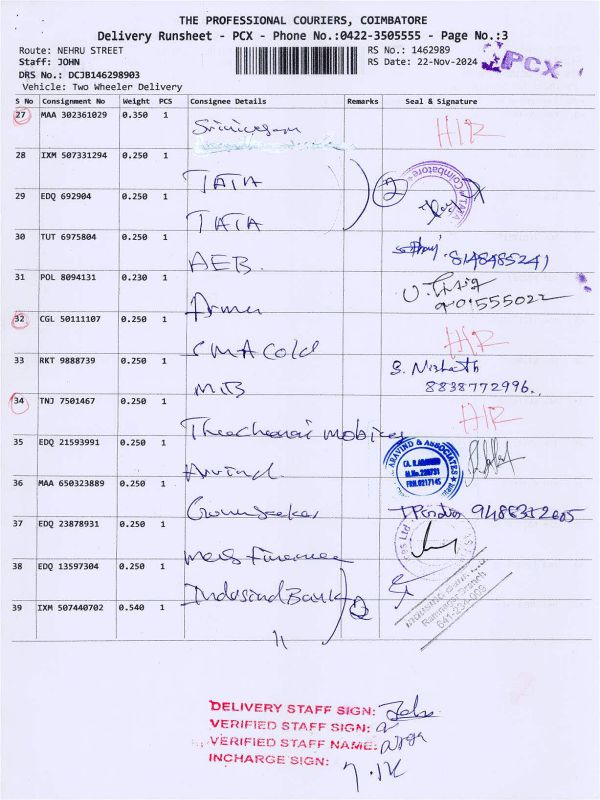 THE PROFESSIONAL COURIERS, COIMBATORE
Delivery Runsheet - PCX - Phone No.:0422-3505555 - Page No.:3
Route: NEHRU STREET
RS No.: 1462989
Staff: JOHN
RS Date: 22-Nov-2024
PCX
DRS No.: DCJB146298903
Vehicle: Two Wheeler Delivery
S No Consignment No Weight PCS Consignee Details Remarks Seal & Signature
27 MAA 302361029 0.350 1
28 IXM 507331294 0.250 1 TATA 2
29 EDQ 692904 0.250 1 TATA
30 TUT 6975804 0.250 1 AEB. 8148485241
31 POL 8094131 0.230 1
32 CGL 50111107 0.250 1 SMA Cold
33 RKT 9888739 0.250 1 MTB S. Nishanth
8838772996.
34 TNJ 7501467 0.250 1
35 EDQ 21593991 0.250 1 Arvind ARAVIND & ASSOCIATES
36 MAA 650323889 0.250 1
37 EDQ 23878931 0.250 1
38 EDQ 13597304 0.250 1 IndusindBank 2
39 IXM 507440702 0.540 1 "
Ramnagar Branch
641-234-009
DELIVERY STAFF SIGN:
VERIFIED STAFF SIGN:
VERIFIED STAFF NAME:
INCHARGE SIGN: